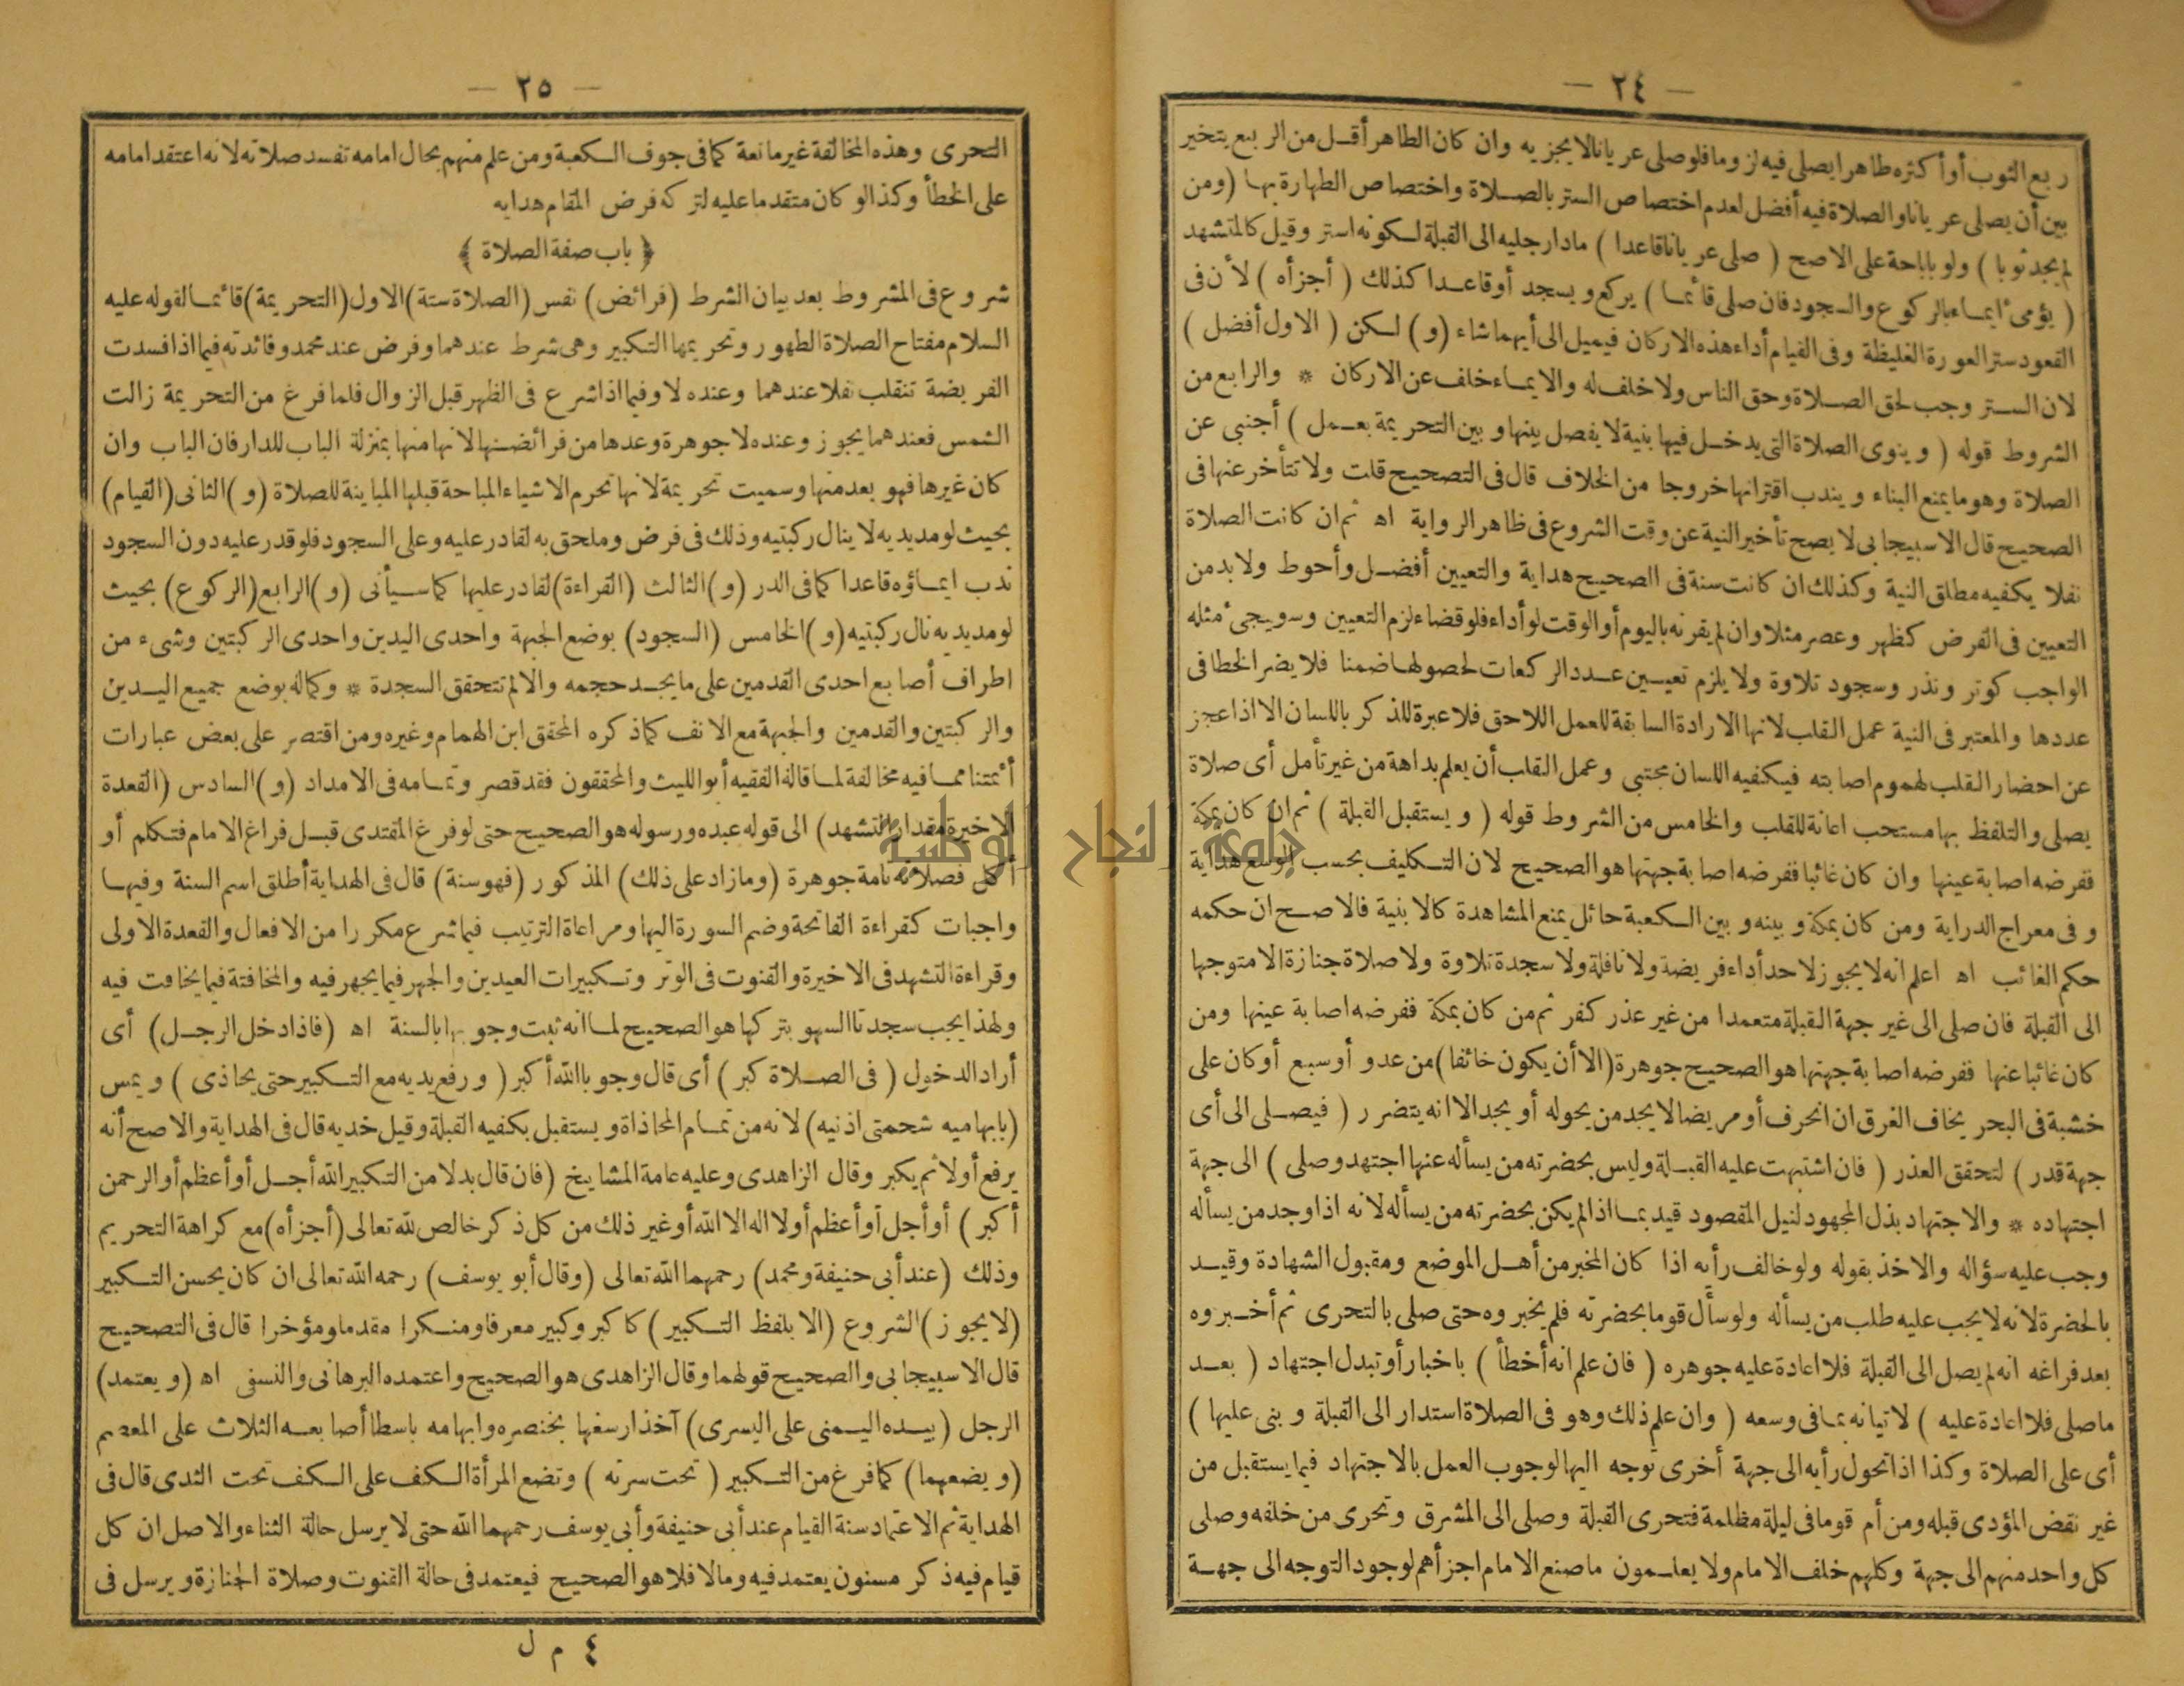 — ٢٤ —
ربع الثوب أو أكثره طاهرا يصلى فيه لزوما فلو صلى عريانا لا يجزيه وان كان الطاهر أقل من الربع يتخير
بين أن يصلى عريانا والصلاة فيه أفضل لعدم اختصاص الستر بالصلاة واختصاص الطهارة بها (ومن
لم يجد ثوبا) ولو باباحة على الاصح (صلى عريانا قاعدا) مادا رجليه الى القبلة لكونه استر وقيل كالمتشهد
(يؤمئ ايماء بالركوع والسجود فان صلى قائما) يركع ويسجد أو قاعدا كذلك (أجزأه) لأن فى
القعود ستر العورة الغليظة وفى القيام أداء هذه الاركان فيميل الى أيهما شاء (و) لكن (الاول أفضل)
لان الستر وجب لحق الصلاة وحق الناس ولا خلف له والايماء خلف عن الاركان * والرابع من
الشروط قوله (وينوى الصلاة التى يدخل فيها بنية لا يفصل بينها وبين التحريمة بعمل) أجنبى عن
الصلاة وهو ما يمنع البناء ويندب اقترانها خروجا من الخلاف قال فى التصحيح قلت ولا تتأخر عنها فى
الصحيح قال الاسبيجابى لا يصح تأخير النية عن وقت الشروع فى ظاهر الرواية اه ثم ان كانت الصلاة
نفلا يكفيه مطلق النية وكذلك ان كانت سنة فى الصحيح هداية والتعيين أفضل وأحوط ولا بد من
التعيين فى الفرض كظهر وعصر مثلا وان لم يقرنه باليوم أو الوقت لو أداء فلو قضاء لزم التعيين وسويجئ مثله
الواجب كوتر ونذر وسجود تلاوة ولا يلزم تعيين عدد الركعات لحصولها ضمنا فلا يضر الخطا فى
عددها والمعتبر فى النية عمل القلب لانها الارادة السابقة للعمل اللاحق فلا عبرة للذكر باللسان الا اذا عجز
عن احضار القلب لهموم اصابته فيكفيه اللسان مجتبى وعمل القلب أن يعلم بداهة من غير تأمل أى صلاة
يصلى والتلفظ بها مستحب اعانة للقلب والخامس من الشروط قوله (ويستقبل القبلة) ثم ان كان بمكة
ففرضه اصابة عينها وان كان غائبا ففرضه اصابة جهتها هو الصحيح لان التكليف بحسب الوسع هداية
وفى معراج الدراية ومن كان بمكة وبينه وبين الكعبة حائل يمنع المشاهدة كالابنية فالاصح ان حكمه
حكم الغائب اه اعلم انه لا يجوز لاحد أداء فريضة ولا نافلة ولا سجدة تلاوة ولا صلاة جنازة الا متوجها
الى القبلة فان صلى الى غير جهة القبلة متعمدا من غير عذر كفر ثم من كان بمكة ففرضه اصابة عينها ومن
كان غائبا عنها ففرضه اصابة جهتها هو الصحيح جوهرة (الا أن يكون خائفا) من عدو أو سبع أو كان على
خشبة فى البحر يخاف الغرق ان انحرف أو مريضا لا يجد من يحوله أو يجد الا انه يتضرر (فيصلى الى أى
جهة قدر) لتحقق العذر (فان اشتبهت عليه القبلة وليس بحضرته من يسأله عنها اجتهد وصلى) الى جهة
اجتهاده * والاجتهاد بذل المجهود لنيل المقصود قيد بما اذا لم يكن بحضرته من يسأله لانه اذا وجد من يسأله
وجب عليه سؤاله والاخذ بقوله ولو خالف رأيه اذا كان المخبر من أهل الموضع ومقبول الشهادة وقيد
بالحضرة لانه لا يجب عليه طلب من يسأله ولو سأل قوما بحضرته فلم يخبروه حتى صلى بالتحرى ثم أخبروه
بعد فراغه انه لم يصل الى القبلة فلا اعادة عليه جوهره (فان علم انه أخطأ) باخبار أو تبدل اجتهاد (بعد
ما صلى فلا اعادة عليه) لاتيانه بما فى وسعه (وان علم ذلك وهو فى الصلاة استدار الى القبلة وبنى عليها)
أى على الصلاة وكذا اذا تحول رأيه الى جهة أخرى توجه اليها لوجوب العمل بالاجتهاد فيما يستقبل من
غير نقض المؤدى قبله ومن أم قوما فى ليلة مظلمة فتحرى القبلة وصلى الى المشرق وتحرى من خلفه وصلى
كل واحد منهم الى جهة وكلهم خلف الامام ولا يعلمون ما صنع الامام اجزأهم لوجود التوجه الى جهة
— ٢٥ —
التحرى وهذه المخالفة غير مانعة كما فى جوف الكعبة ومن علم منهم بحال امامه تفسد صلاته لانه اعتقد امامه
على الخطأ وكذا لو كان متقدما عليه لتركه فرض المقام هدايه
﴿ باب صفة الصلاة ﴾
شروع فى المشروط بعد بيان الشرط (فرائض) نفس (الصلاة ستة) الاول (التحريمة) قائما لقوله عليه
السلام مفتاح الصلاة الطهور وتحريمها التكبير وهى شرط عندهما وفرض عند محمد وفائدته فيما اذا فسدت
الفريضة تنقلب نفلا عندهما وعنده لا وفيما اذا شرع فى الظهر قبل الزوال فلما فرغ من التحريمة زالت
الشمس فعندهما يجوز وعنده لا جوهرة وعدها من فرائضها لانها منها بمنزلة الباب للدار فان الباب وان
كان غيرها فهو بعد منها وسميت تحريمة لانها تحرم الاشياء المباحة قبلها المباينة للصلاة (و) الثانى (القيام)
بحيث لو مد يديه لا ينال ركبتيه وذلك فى فرض وملحق به لقادر عليه وعلى السجود فلو قدر عليه دون السجود
ندب ايماؤه قاعدا كما فى الدر (و) الثالث (القراءة) لقادر عليها كما سيأتى (و) الرابع (الركوع) بحيث
لو مد يديه نال ركبتيه (و) الخامس (السجود) بوضع الجبهة واحدى اليدين واحدى الركبتين وشىء من
اطراف أصابع احدى القدمين على ما يجد حجمه والا لم تتحقق السجدة * وكماله بوضع جميع اليدين
والركبتين والقدمين والجبهة مع الانف كما ذكره المحقق ابن الهمام وغيره ومن اقتصر على بعض عبارات
أئمتنا مما فيه مخالفة لما قاله الفقيه أبو الليث والمحققون فقد قصر وتمامه فى الامداد (و) السادس (القعدة
الاخيرة مقدار التشهد) الى قوله عبده ورسوله هو الصحيح حتى لو فرغ المقتدى قبل فراغ الامام فتكلم أو
أكل فصلاته تامة جوهرة (وما زاد على ذلك) المذكور (فهو سنة) قال فى الهداية أطلق اسم السنة وفيها
واجبات كقراءة الفاتحة وضم السورة اليها ومراعاة الترتيب فيما شرع مكررا من الافعال والقعدة الاولى
وقراءة التشهد فى الاخيرة والقنوت فى الوتر وتكبيرات العيدين والجهر فيما يجهر فيه والمخافتة فيما يخافت فيه
ولهذا يجب سجدتا السهو بتركها هو الصحيح لما انه ثبت وجوبها بالسنة اه (فاذا دخل الرجل) أى
أراد الدخول (فى الصلاة كبر) أى قال وجوبا الله أكبر (ورفع يديه مع التكبير حتى يحاذى) ويمس
(بابهاميه شحمتى اذنيه) لانه من تمام المحاذاة ويستقبل بكفيه القبلة وقيل خديه قال فى الهداية والاصح أنه
يرفع أولا ثم يكبر وقال الزاهدى وعليه عامة المشايخ (فان قال بدلا من التكبير الله أجل أو أعظم أو الرحمن
أكبر) أو أجل أو أعظم أو لا اله الا الله أو غير ذلك من كل ذكر خالص لله تعالى (أجزأه) مع كراهة التحريم
وذلك (عند أبى حنيفة ومحمد) رحمهما الله تعالى (وقال أبو يوسف) رحمه الله تعالى ان كان يحسن التكبير
(لا يجوز) الشروع (الا بلفظ التكبير) كاكبر وكبير معرفا ومنكرا مقدما ومؤخرا قال فى التصحيح
قال الاسبيجابى والصحيح قولهما وقال الزاهدى هو الصحيح واعتمده البرهانى والنسفى اه (ويعتمد)
الرجل (بيده اليمنى على اليسرى) آخذا رسغها بخنصره وابهامه باسطا أصابعه الثلاث على المعصم
(ويضعهما) كما فرغ من التكبير (تحت سرته) وتضع المرأة الكف على الكف تحت الثدى قال فى
الهداية ثم الاعتماد سنة القيام عند أبى حنيفة وأبى يوسف رحمهما الله حتى لا يرسل حالة الثناء والاصل ان كل
قيام فيه ذكر مسنون يعتمد فيه وما لا فلا هو الصحيح فيعتمد فى حالة القنوت وصلاة الجنازة ويرسل فى
٤ م ل
جامعة النجاح الوطنية